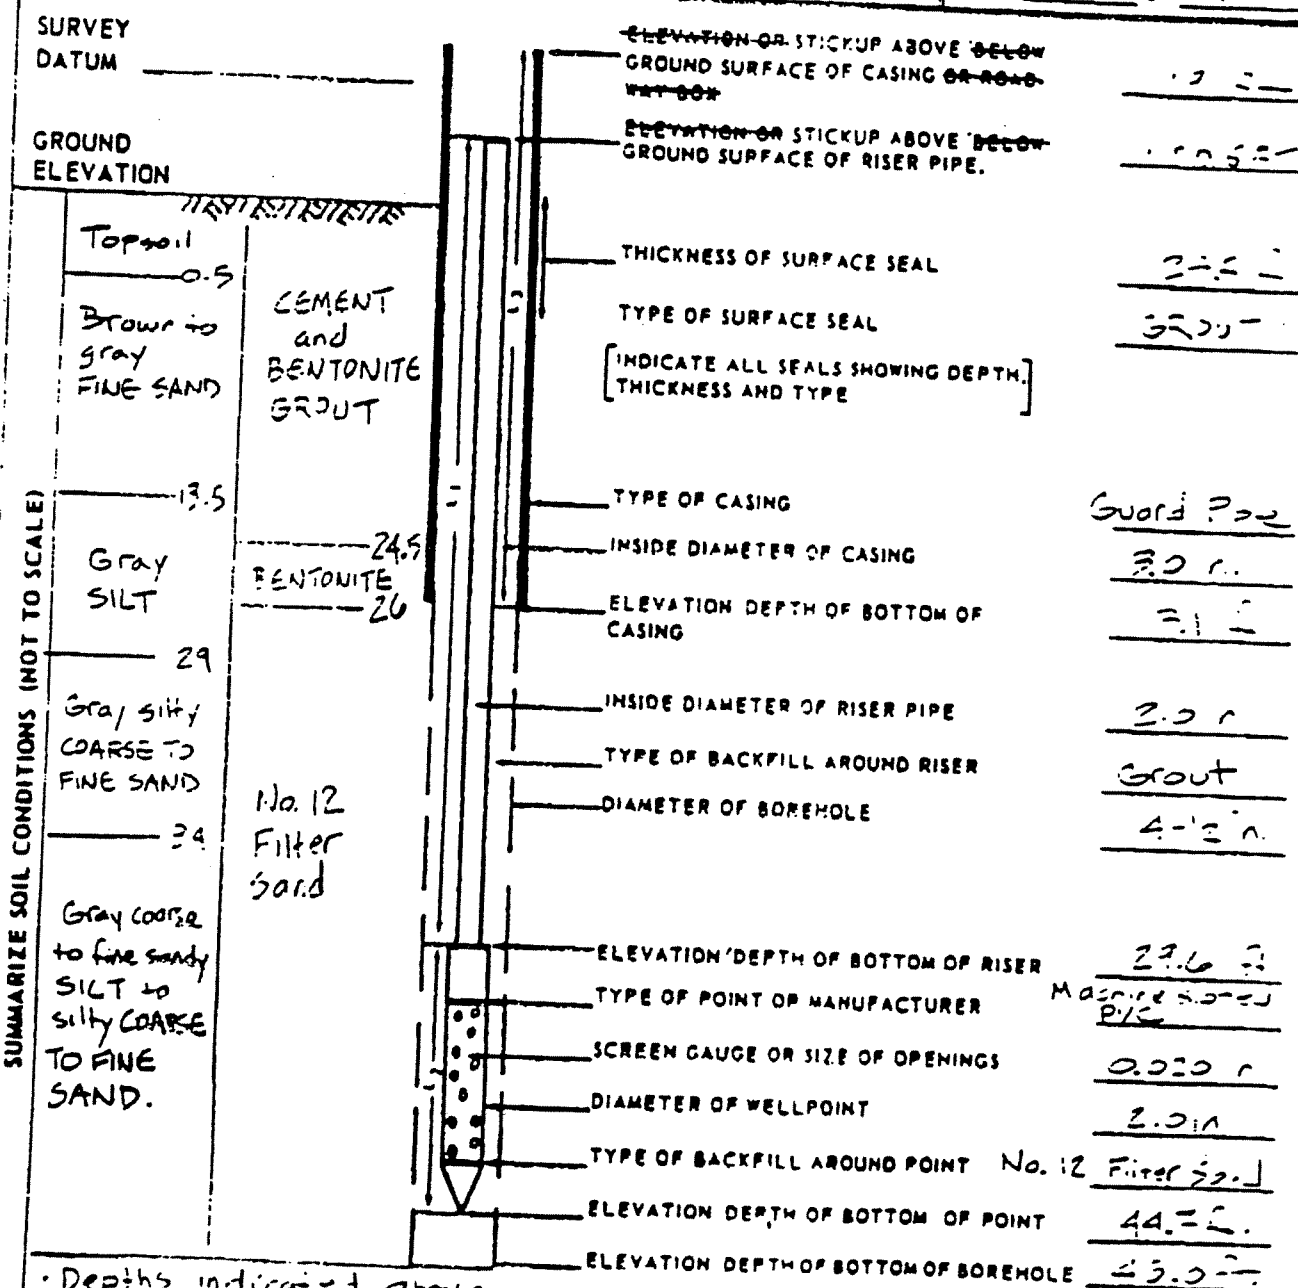 SURVEY
DATUM
GROUND
ELEVATION
SUMMARIZE SOIL CONDITIONS (NOT TO SCALE)
Topsoil
0.5
Brown to
gray
FINE SAND
13.5
Gray
SILT
29
Gray silty
COARSE TO
FINE SAND
34
Gray coarse
to fine sandy
SILT to
silty COARSE
TO FINE
SAND.
CEMENT
and
BENTONITE
GROUT
24.5
BENTONITE
26
No. 12
Filter
Sand
ELEVATION OR STICKUP ABOVE BELOW
GROUND SURFACE OF CASING OR ROAD-
WAY BOX
ELEVATION OR STICKUP ABOVE BELOW
GROUND SURFACE OF RISER PIPE.
THICKNESS OF SURFACE SEAL
TYPE OF SURFACE SEAL GROUT
[INDICATE ALL SEALS SHOWING DEPTH,
THICKNESS AND TYPE]
TYPE OF CASING Guard Pipe
INSIDE DIAMETER OF CASING 3.0
ELEVATION DEPTH OF BOTTOM OF
CASING
INSIDE DIAMETER OF RISER PIPE 2.0
TYPE OF BACKFILL AROUND RISER Grout
DIAMETER OF BOREHOLE
ELEVATION/DEPTH OF BOTTOM OF RISER
TYPE OF POINT OR MANUFACTURER Machine slotted
PVC
SCREEN GAUGE OR SIZE OF OPENINGS
DIAMETER OF WELLPOINT 2.0in
TYPE OF BACKFILL AROUND POINT No. 12 Filter Sand
ELEVATION DEPTH OF BOTTOM OF POINT
ELEVATION DEPTH OF BOTTOM OF BOREHOLE
Depths indicated above